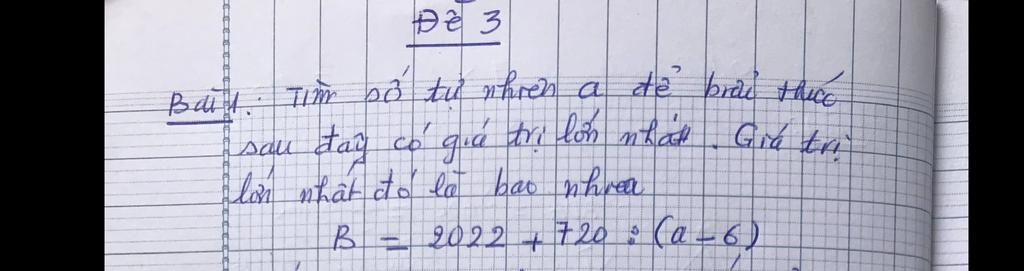 Đề 3
Bài 1: Tìm số tự nhiên a để biểu thức
sau đây có giá trị lớn nhất. Giá trị
lớn nhất đó là bao nhiêu
B = 2022 + 720 : (a - 6)